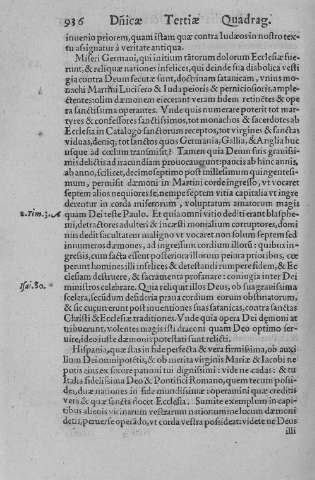 936 Dñicæ Tertiæ Quadrag.
inuenio priorem, quam istam quæ contra Iudæos in nostro tex-
tu asignatur à veritate antiqua.
Miseri Germani, qui initium tãtorum dolorum Ecclesiæ fue-
runt, & reliquæ nationes infelices, qui deinde sua diabolica vesti
gia contra Deum secutæ sunt, doctrinam satanicam, vnius mo-
nachi Martini Lucifero & Iuda peioris & perniciosioris,ample-
ctentes: olim dæmonem eiecerant verum fidem retinẽtes & ope
ra sanctissima operantes. Vnde quis numerare poterit tot mar-
tyres & confessores sanctissimos, tot monachos & sacerdotes ab
Ecclesia in Catalogo sanctorum receptos, tot virgines & sanctas
viduas, deniq; tot sanctos quos Germania, Gallia, & Anglia huc
usque ad cœlum transmisit? Tamen quia Deum suis grauissi-
mis delictis ad iracundiam prouocarunt: paucis ab hinc annis,
ab anno, scilicet, decimoseptimo post millesimum quingentesi-
mum, permisit dæmoni in Martini corde ingresso, vt vocaret
septem alios nequiores se, nempe septem vitia capitalia vt ingre
derentur in corda miserorum, voluptatum amatorum magis
2. Tim. 3. quam Dei teste Paulo. Et quia omni vitio dediti erant blasphe-
mi, detractores adulteri & incæsti monialium corruptores, domi
nis dedit facultatem maligno vt vocaret non solum septem sed
innumeros dæmones, ad ingressum cordium illorũ: quibus in-
gressis, cum facta essent posteriora illorum peiora prioribus, cœ
perunt homines illi infelices & detestandi rumpere fidem, & Ec
clesiam destruere, & sacramenta profanare: coningia inter Dei
Isai. 80. ministros celebrare. Quia reliquit illos Deus, ob sua grauissima
scelera, secũdum desideria praua cordium eorum obstinatorum,
& sic eucurrerunt post inuentiones suas satanicas, contra sanctas
Christi & Ecclesiæ traditiones. Vnde quia opera Dei demoni at
tribuerunt, volentes magis isti draconi quam Deo optimo ser-
uire, ideo iuste dæmonis potestati sunt relicti.
Hispania, quæ stas in fide perfecta & vera firmissima, ob auxi
lium Dei omnipotẽtis, & ob merita virginis Mariæ & Iacobi ne
potis eius ex sorore patroni tui dignissimi: vide ne cadas: & tu
Italia fidelissima Deo & Pontifici Romano, quem tecum possi-
des, duæ nationes in fide mundissimæ: operamini quæ crediti-
vera & quæ sancta docet Ecclesia. Sumite exemplum in capi-
tibus alienis vicinarum vestrarum nationum ne lucum dæmoni
detis, peruerse operãdo, vt corda vestra possideat: videte ne Deus
illi